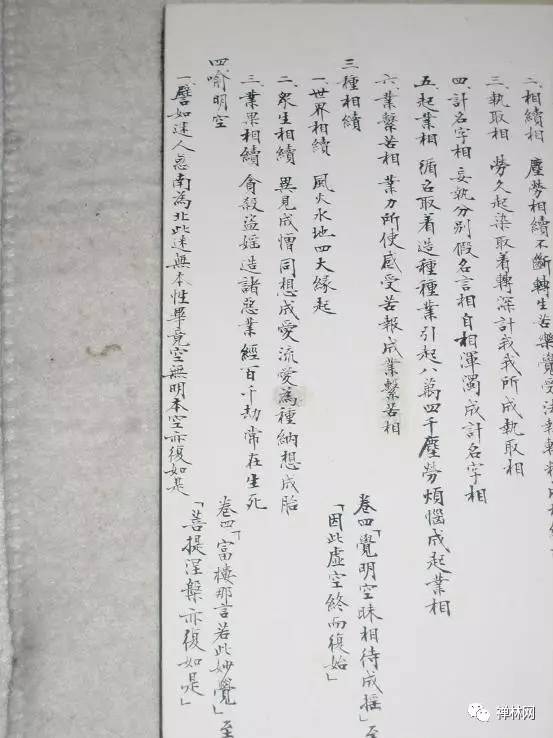 二、相續相 塵勞相續不斷轉生苦樂覺受法執轉
三、執取相 勞久起染取着轉深計我我所成執取相
四、計名字相 妄執分别假名言相自相渾濁成計名字相
五、起業相 循名取着造種種業引起八萬四千塵勞煩惱成起業相
六、業繫苦相 業力所使感受苦報成業繫苦相
三種相續
卷四「覺明空昧相待成摇」至
「因此虚空終而復始」
一、世界相續 風火水地四大緣起
二、衆生相續 異見成憎同想成愛流愛為種納想成胎
三、業果相續 貪殺盗婬造諸惡業經百千劫常在生死
四喻明空
卷四「富樓那言若此妙覺」至
「菩提涅槃亦復如是」
一、譬如迷人惑南為北此迷無本性畢竟空無明本空亦復如是
禅林网